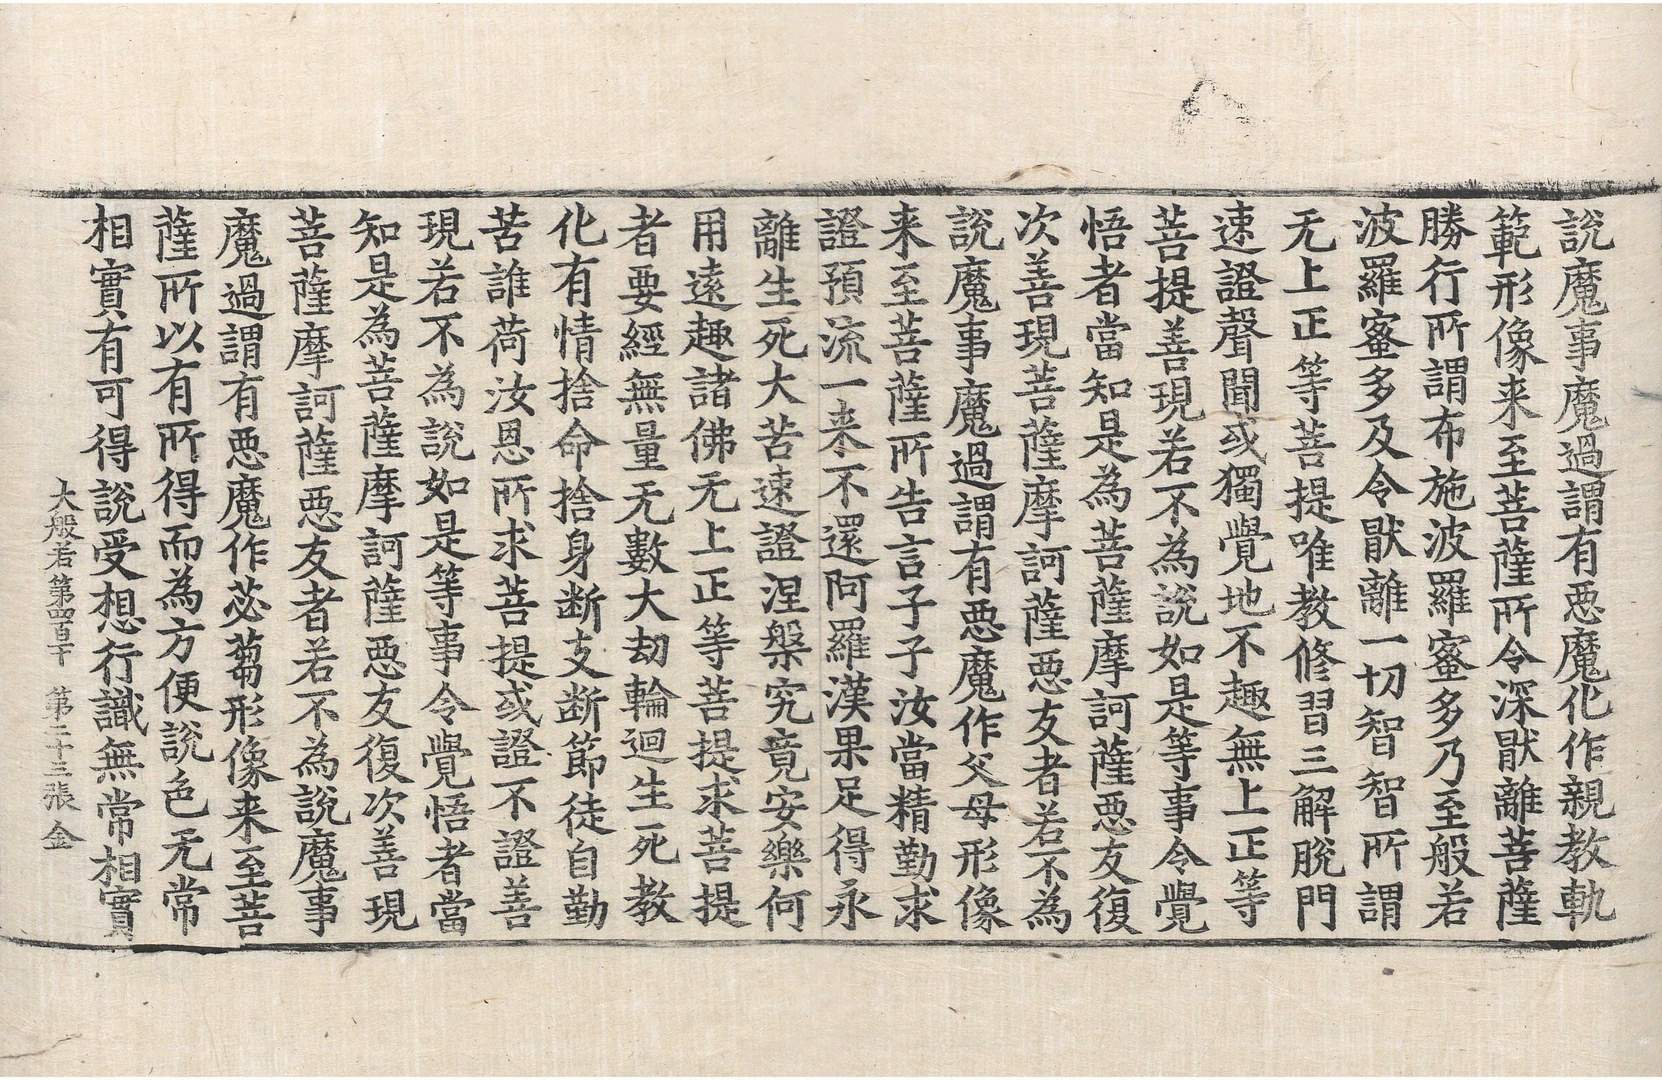 說魔事魔過謂有惡魔化作親教軌
範形像来至菩薩所令深猒離菩薩
勝行所謂布施波羅蜜多乃至般若
波羅蜜多及令猒離一切智智所謂
无上正等菩提唯教修習三解脫門
速證聲聞或獨覺地不趣無上正等
菩提善現若不為說如是等事令覺
悟者當知是為菩薩摩訶薩惡友復
次善現菩薩摩訶薩惡友者若不為
說魔事魔過謂有惡魔作父母形像
来至菩薩所告言子子汝當精勤求
證預流一来不還阿羅漢果足得永
離生死大苦速證涅槃究竟安樂何
用遠趣諸佛无上正等菩提求菩提
者要經無量无數大劫輪迴生死教
化有情捨命捨身断支断節徒自勤
苦誰荷汝恩所求菩提或證不證善
現若不為說如是等事令覺悟者當
知是為菩薩摩訶薩惡友復次善現
菩薩摩訶薩惡友者若不為說魔事
魔過謂有惡魔作苾蒭形像来至菩
薩所以有所得而為方便說色无常
相實有可得說受想行識無常相實
大般若第四百十 第二十三張 金